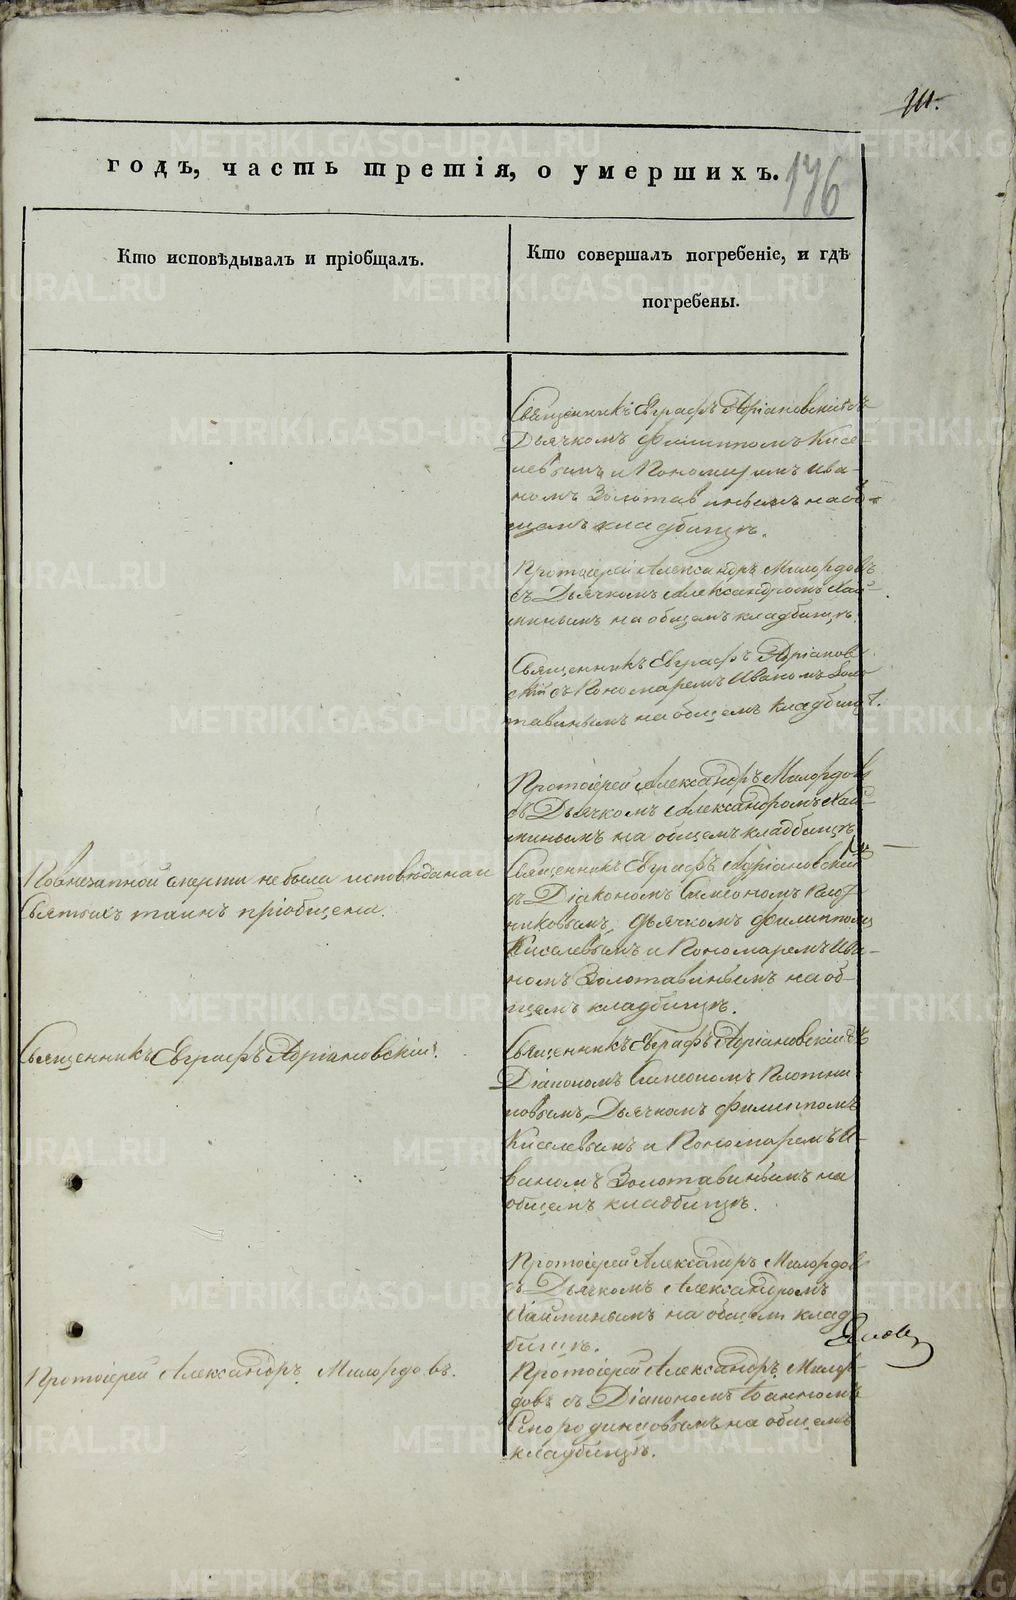 111.
176
годъ, часть третія, о умершихъ.
Кто исповѣдывалъ и пріобщалъ.
Кто совершалъ погребеніе, и гдѣ
погребены.
Священникъ Евграфъ Адріановскій съ
Дьячкомъ Филиппомъ Кисе
левымъ и Пономаремъ Ива-
номъ Золотавинымъ на об-
щемъ кладбищѣ.
Протоіерей Александръ Милордовъ
съ Дьячкомъ Александромъ
на общемъ кладбищѣ.
Священникъ Евграфъ Адріанов
скій съ Пономаремъ Иваномъ Золо
тавинымъ на общемъ кладбищѣ.
Протоіерей Александръ Милордовъ
съ Дьячкомъ Александромъ
на общемъ кладбищѣ
По внезапной смерти не была исповѣдана и
Святыхъ таинъ пріобщена.
Священникъ Евграфъ Адріановскій
съ Діакономъ Симеономъ Плот
никовымъ, Дьячкомъ Филиппомъ
Киселевымъ и Пономаремъ Ива-
номъ Золотавинымъ на об-
щемъ кладбищѣ.
Священникъ Евграфъ Адріановскій.
Священникъ Евграфъ Адріановскій съ
Діакономъ Симеономъ Плотни
ковымъ, Дьячкомъ Филиппомъ
Киселевымъ и Пономаремъ И-
ваномъ Золотавинымъ на
общемъ кладбищѣ.
Протоіерей Александръ Милордовъ
съ Дьячкомъ Александромъ
на общемъ клад
бищѣ.
Протоіерей Александръ Милордовъ.
Протоіерей Александръ Милор
довъ съ Діакономъ Іоанномъ
на общемъ
кладбищѣ.
METRIKI.GASO-URAL.RU